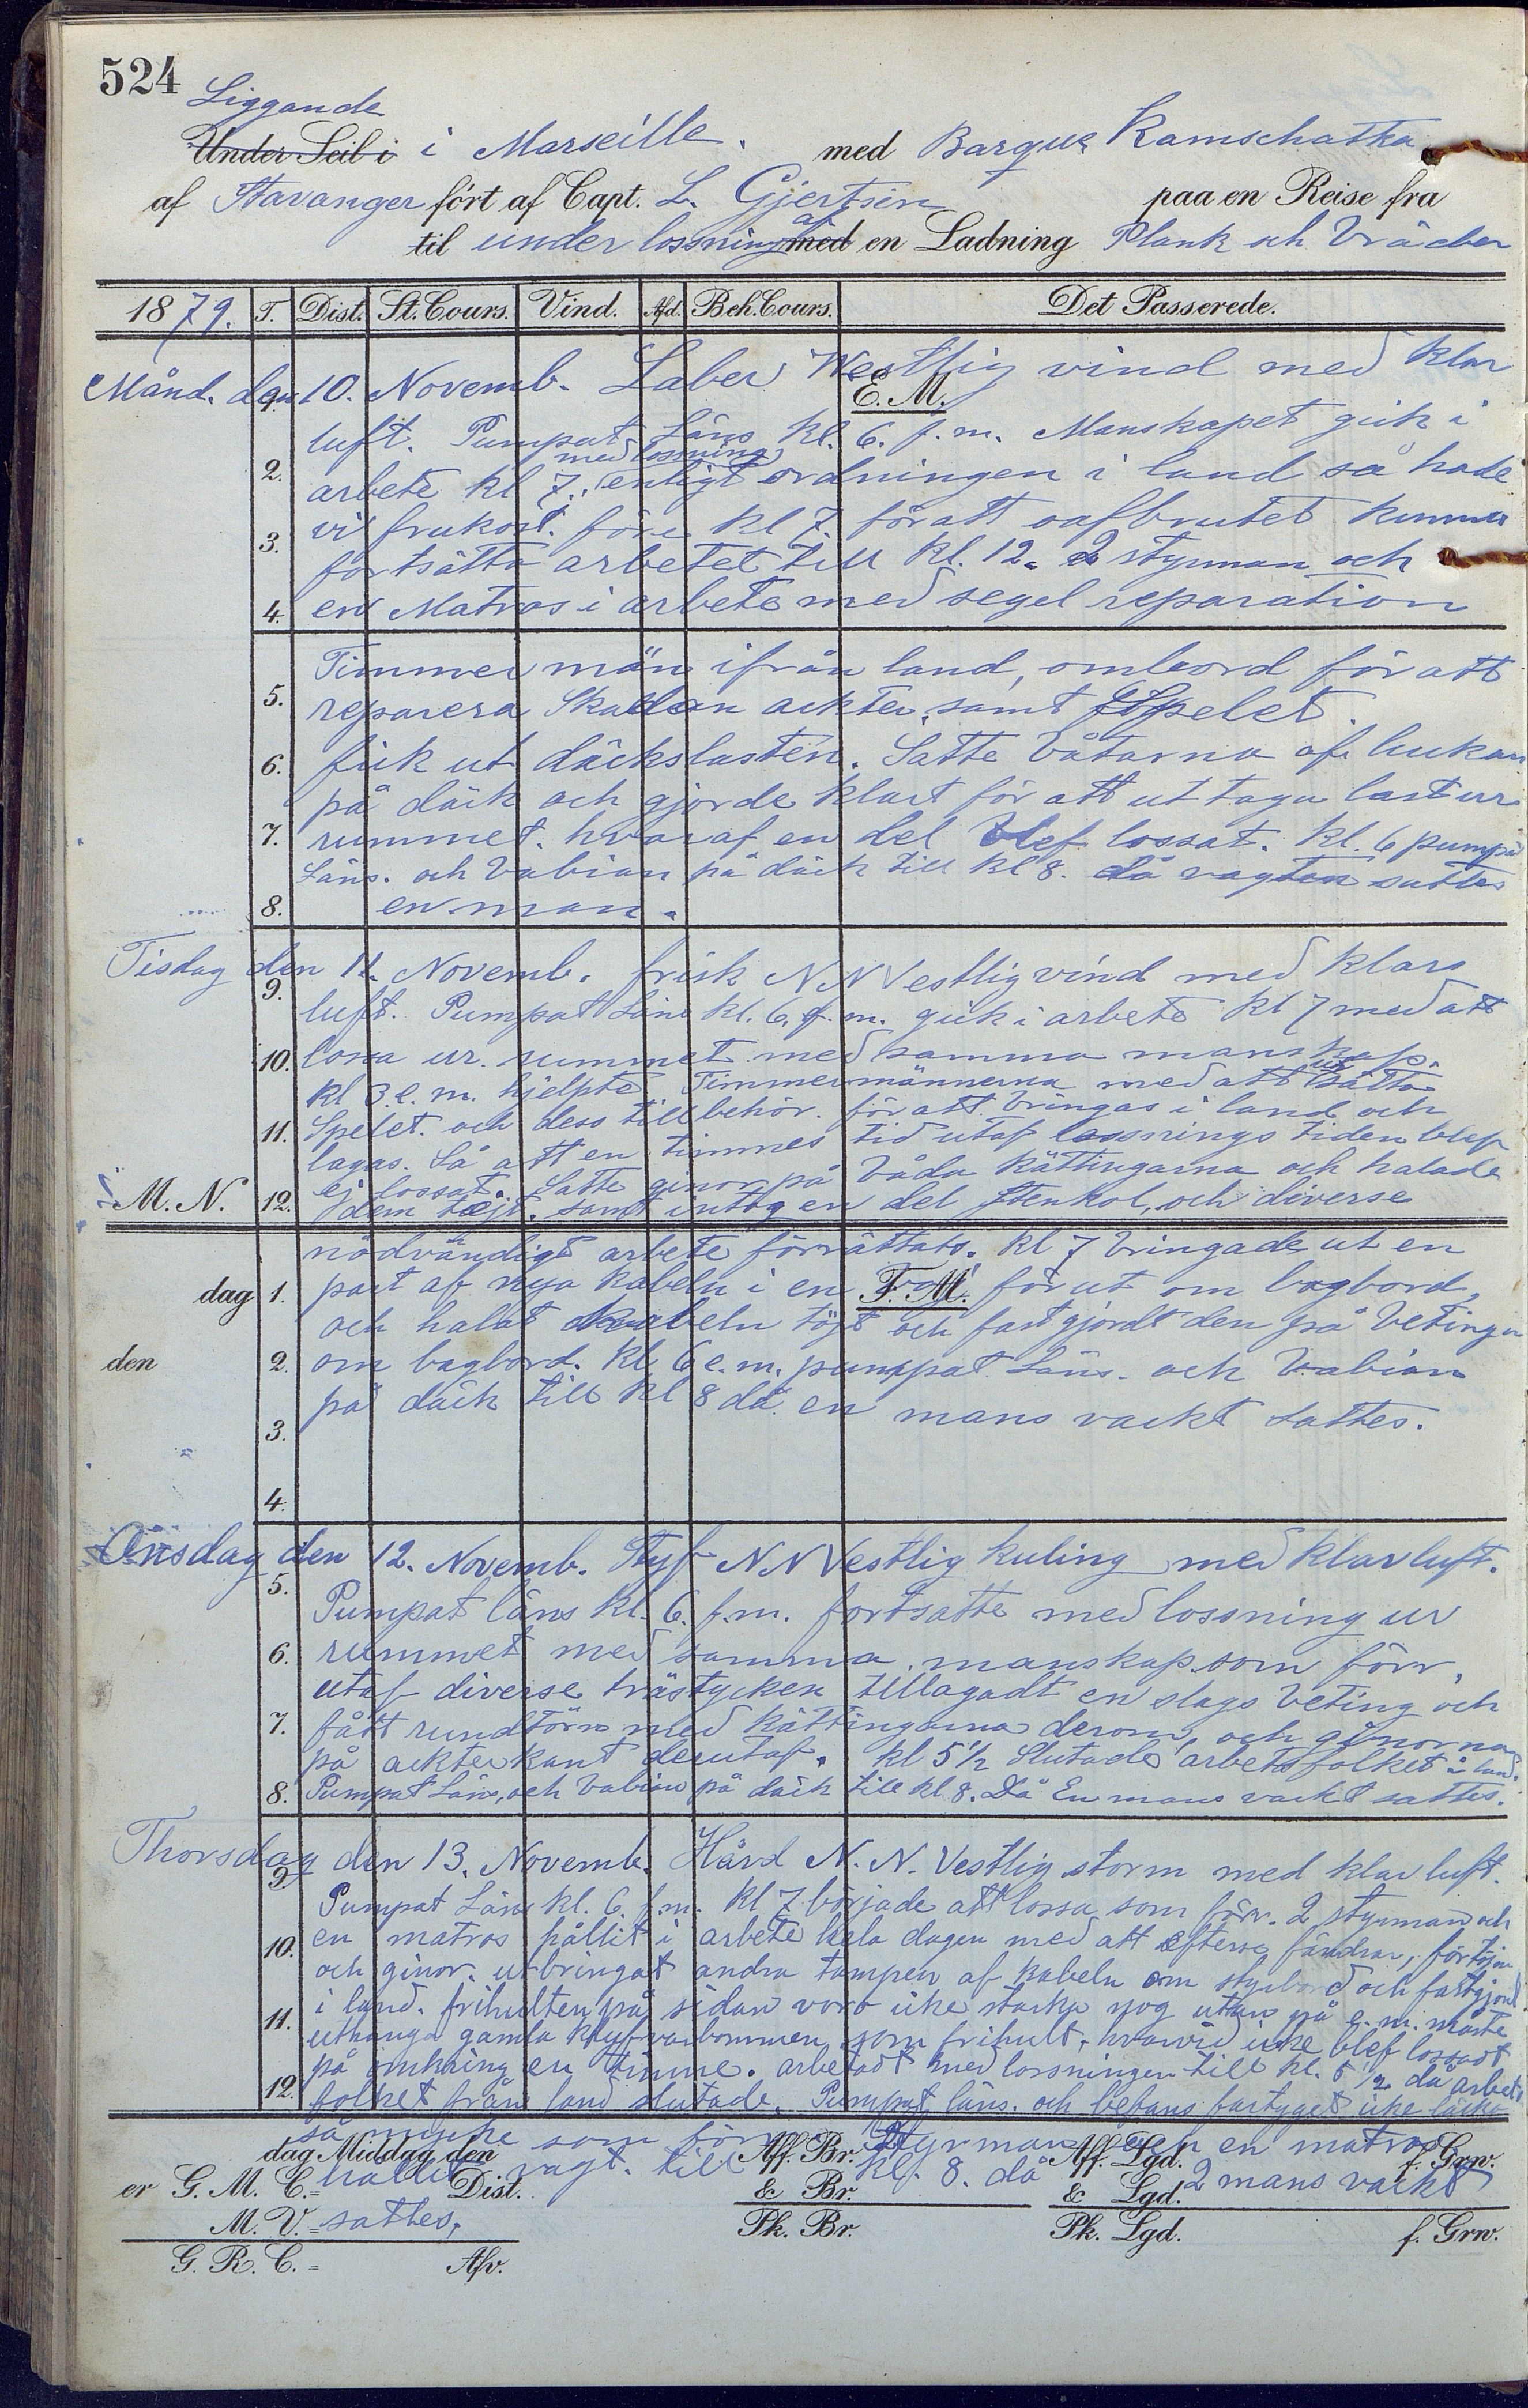 524
Liggande
Under Seil i i Marseille. med Barque Kamschatka
af Stavanger fört af Capt. L. Gjertsen paa en Reise fra
af
til under lossning med en Ladning Plank och Bräder
1879. T. Dist. St. Cours. Vind. Afd. Beh. Cours. Det Passerede.
Månd. den 10. Novemb. Laber Westlig vind med klar
1. E. M.
luft. Pumpat Läns kl. 6. f.m. Manskapet gick i
med lossning
2. arbete kl 7. enligt ordningen i land så hade
vi frukost. före kl 7. för att oafbrutet kunna
3. fortsätta arbetet till kl. 12. 2 styrman och
4. en Matros i arbete med segel reparation
Timmermän ifrån land, ombord för att
5. reparera Skadan ackter, samt Spelet.
6. fick ut däckslasten. Satte båtarna af luckan
på däck och gjorde klart för att uttaga last ur
7. rummet. hvaraf en del blef lossat. kl. 6 pumpa
Läns. och babian på däck till kl 8. då vagten sattes
8. en man.
Tisdag den 11. Novemb. frisk NNVestlig vind med klar
9. luft. Pumpat Läns kl. 6. f.m. gick i arbete kl 7 med att
10. lossa ur rummet med samma manskap.
kl 3 e.m. hjelpte Timmermännerna med att sätta
11. Spelet. och dess tillbehör. för att bringas i land och
lagas. Så att en timmes tid utaf lossnings tiden blef
ej lossat. Satte ginor på båda kättingarna och halade
M. N. 12. dem tejt. samt intog en del Stenkol, och diverse
nödvändigt arbete förrättats. kl 7 bringade ut en
dag 1. part af nya kabeln i en F. M. för ut om bagbord,
och halat kabeln töjt och fastgjordt den på betingen
den 2. om bagbord. kl 6 e.m. pumpat Läns. och babian
på däck till kl 8 då en mans vackt sattes.
3.
4.
Onsdag den 12. Novemb. Styf NNVestlig kuling med klar luft.
5. Pumpat läns kl. 6. f.m. fortsatte med lossning ur
6. rummet med samma manskap som förr,
utaf diverse trästycken tillagadt en slags beting och
7. fått rundtörn med kättingarna derom, och ginorna
på ackterkant derutaf. kl 5 1/2 Slutade arbetsfolket i land.
8. Pumpat Läns, och babian på däck till kl 8. Då En mans vackt sattes.
Thorsdag den 13. Novemb. Hård N. N. Vestlig storm med klar luft.
9. Pumpat Läns kl. 6. f.m. kl 7 började att lossa som förr. 2 styrman och
10. en matros hållit i arbete hela dagen med att efterse fändrar, förtöjn
och ginor. utbringat andra tampen af kabeln om styrbord och fastgjord
i land. frihulten på sidan voro icke starka nog utan på e.m. måste
11. uthänga gamla klyfvarbommen som frihult, hvarvid icke blef lossadt
på omkring en timme. arbetadt med lossningen till kl. 5 1/2 då arbets
12. folket från land slutade. Pumpat läns. och befans fartyget icke läcka
så mycke som förr Styrman och en matros
dag Middag den Aff. Br. Aff. Lgd. f. Grw.
hållit vagt. till kl. 8. då 2 mans vackt
er G. M. C. = Dist. & Br. & Lgd.
M. V. = sattes. Pk. Br. Pk. Lgd. f. Grw.
G. R. C. = Afv.